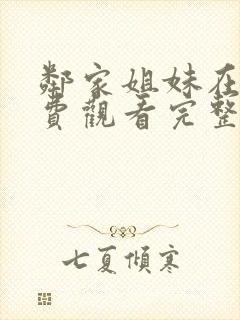 鄰家姐妹在
費觀看完整
七夏傾寒